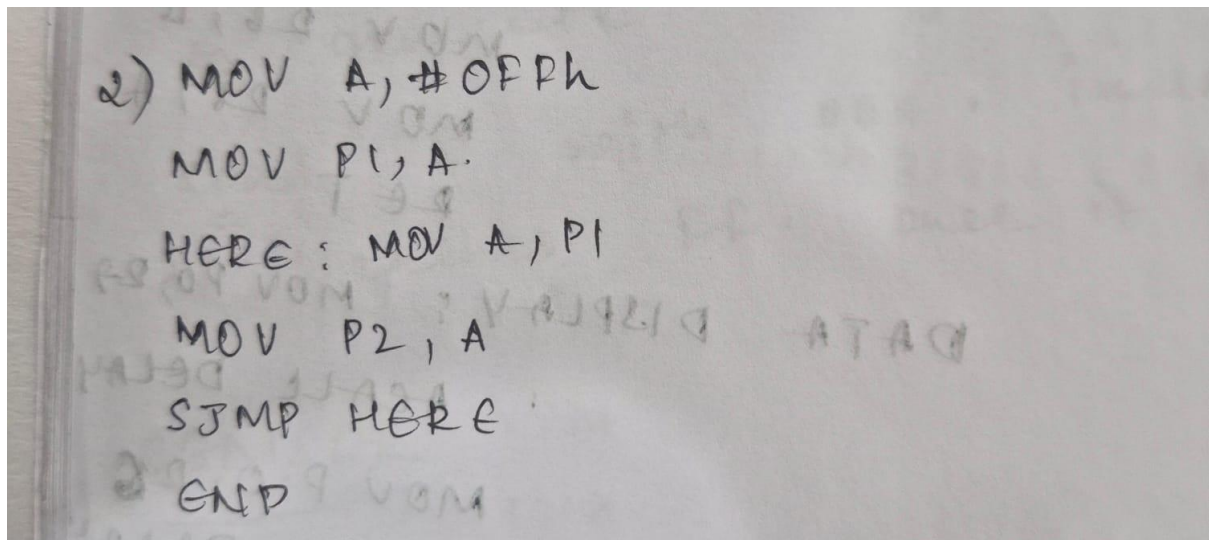 2) MOV A, #0FFh
MOV P1, A.
HERE: MOV A, P1
MOV P2, A
SJMP HERE
END